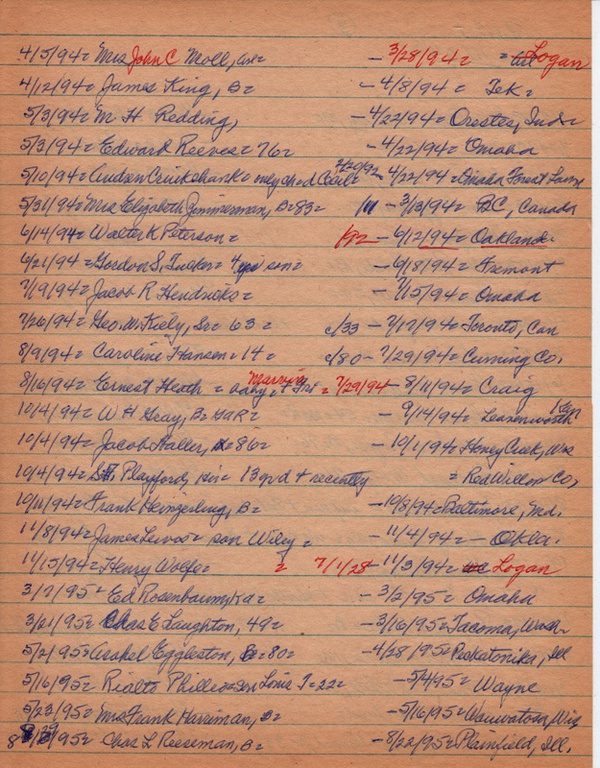 4/5/94= Mrs John C Moll, — 3/28/94= = Logan
4/12/94= James King, B= — 4/8/94= Tek=
5/3/94= M H Redding, — 4/22/94= Orestes, Ind=
5/3/94= Edward Reeves= 76= — 4/22/94= Omaha
5/10/94= Cruickshank= only ch d 2/20/92 — 4/22/94= Omaha Forest Lawn
5/31/94= Mrs Elizabeth Zimmerman, B=83= — 3/13/94= BC, Canada
6/14/94= Walter K Peterson= 1/92 — 6/12/94= Oakland=
6/21/94= Gordon S, Tucker= 4 son= — 6/18/94= Fremont
7/19/94= Jacob R Hendricks= — 7/15/94= Omaha
7/26/94= Geo. M. Kiely, Sr= 63= c/33 — 7/17/94= Toronto, Can
8/9/94= Caroline Hansen= 14= c/80 — 7/29/94= Cuming Co,
8/16/94= Ernest Heath = baby, Marvin + = 7/29/94 — 8/11/94= Craig
10/4/94= W H Gray, B= GAR= — 9/14/94= Leavenworth Kan
10/4/94= Jacob Haller, 86= — 10/1/94= Honey Creek, Wis
10/4/94= Playford, his= 13 gvd + recently = Red Willow Co,
10/11/94= Frank Heingerling, B= — 10/8/94= Baltimore, Md.
11/8/94= James Lewis= son Wiley= — 11/4/94= — Okla.
11/15/94= Henry Wolfe= = 7/1/28 — 11/3/94= Logan
3/7/95= Ed Rosenbaum, — 3/2/95= Omaha
3/21/95= Chas E Laughton, 49= — 3/16/95= Tacoma, Wash=
5/2/95= Eggleston, B=80= — 4/28/95= Peckatonika, Ill
5/16/95= Rialto Phillio= Louis T=22= — 5/4/95= Wayne
5/23/95= Mrs Frank Harriman, B= — 5/16/95= Wauwatosa, Wis
8/29/95= Chas L Reeseman, B= — 8/22/95= Plainfield, Ill.